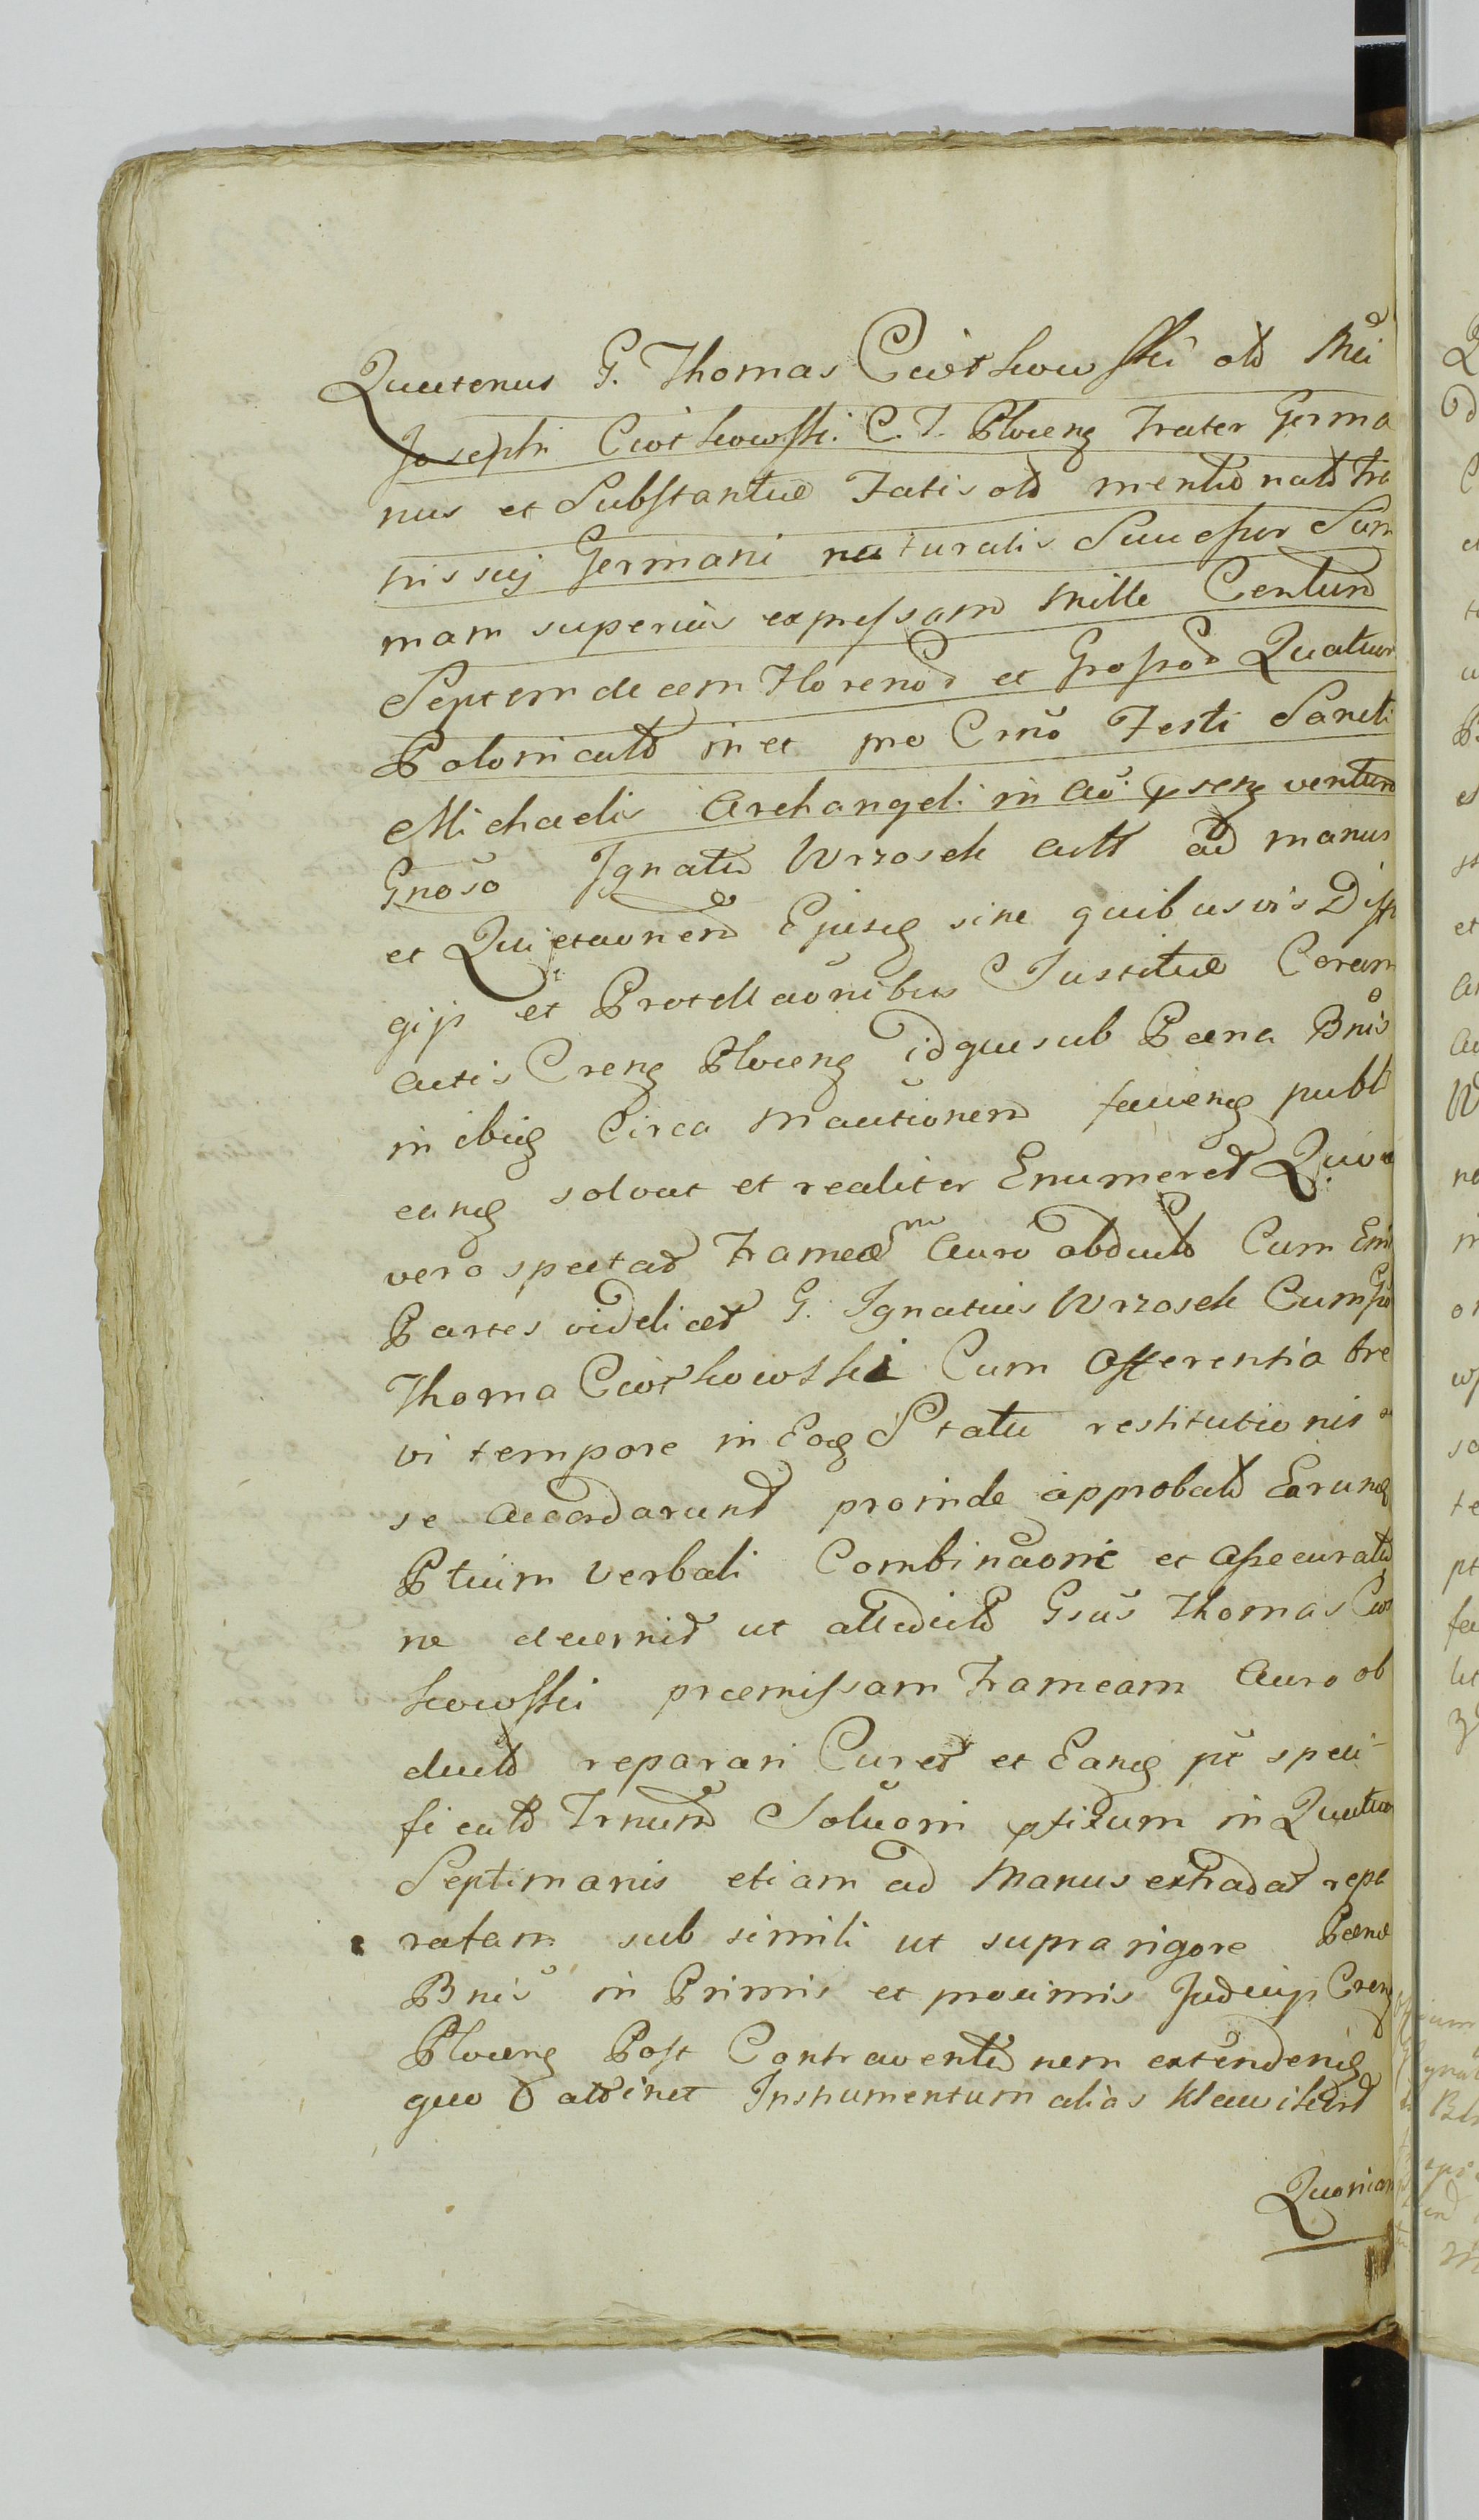 Quatenus G. Thomas Cwotkowski old Mci
Josephi Cwotkowski C. T. Plocenq Frater Germa
nus et Substantiæ Fatis old mentionald Fra
tris sui Germani naturalis Successor Sum
mam superius expressam Mille Centum
Septemdecem Florenod et Grossod Quatuor
Polonicald in et pro Crno Festi Sancti
Michaelis Archangeli in Ao psenq venturo
Gnoso Ignatio Wrzosek actt ad manus
et Quietaonem Ejusq sine quibusvis Diff
gijs et Protellaonibus Justitiæ Coram
actis Crenq Plocenq idque sub Pæna Bnis
in ibiq Circa Mactionem faciend publ
eanq solvat et realiter Enumeret Quo
vero spectat Frameam Auro obductd Cum Em
Partes videlicet G. Ignatius Wrzosek Cum Gso
Thoma Cwotkowski Cum Offerentia bre
vi tempore in Eoq Statu restitutionis
se Accordarunt proinde approbatd Earunq
Ptium verbali Combinaone et Assecuratio
ne decernit ut attedictd Gsus Thomas Cwo
kowski præmissam Frameam Auro ob
ductd reparari Curet et Eanq pt speci-
ficatd Trnum Soluoni pfixum in Quatuor
Septimanis etiam ad Manus extradat repa
ratam sub simili ut supra rigore Pænæ
Bnis in Primis et proximis Judicijs Crenq
Plocenq Post Contraventionem extendend
quo d attinet Instrumentum alias Klawikort
Quoniam